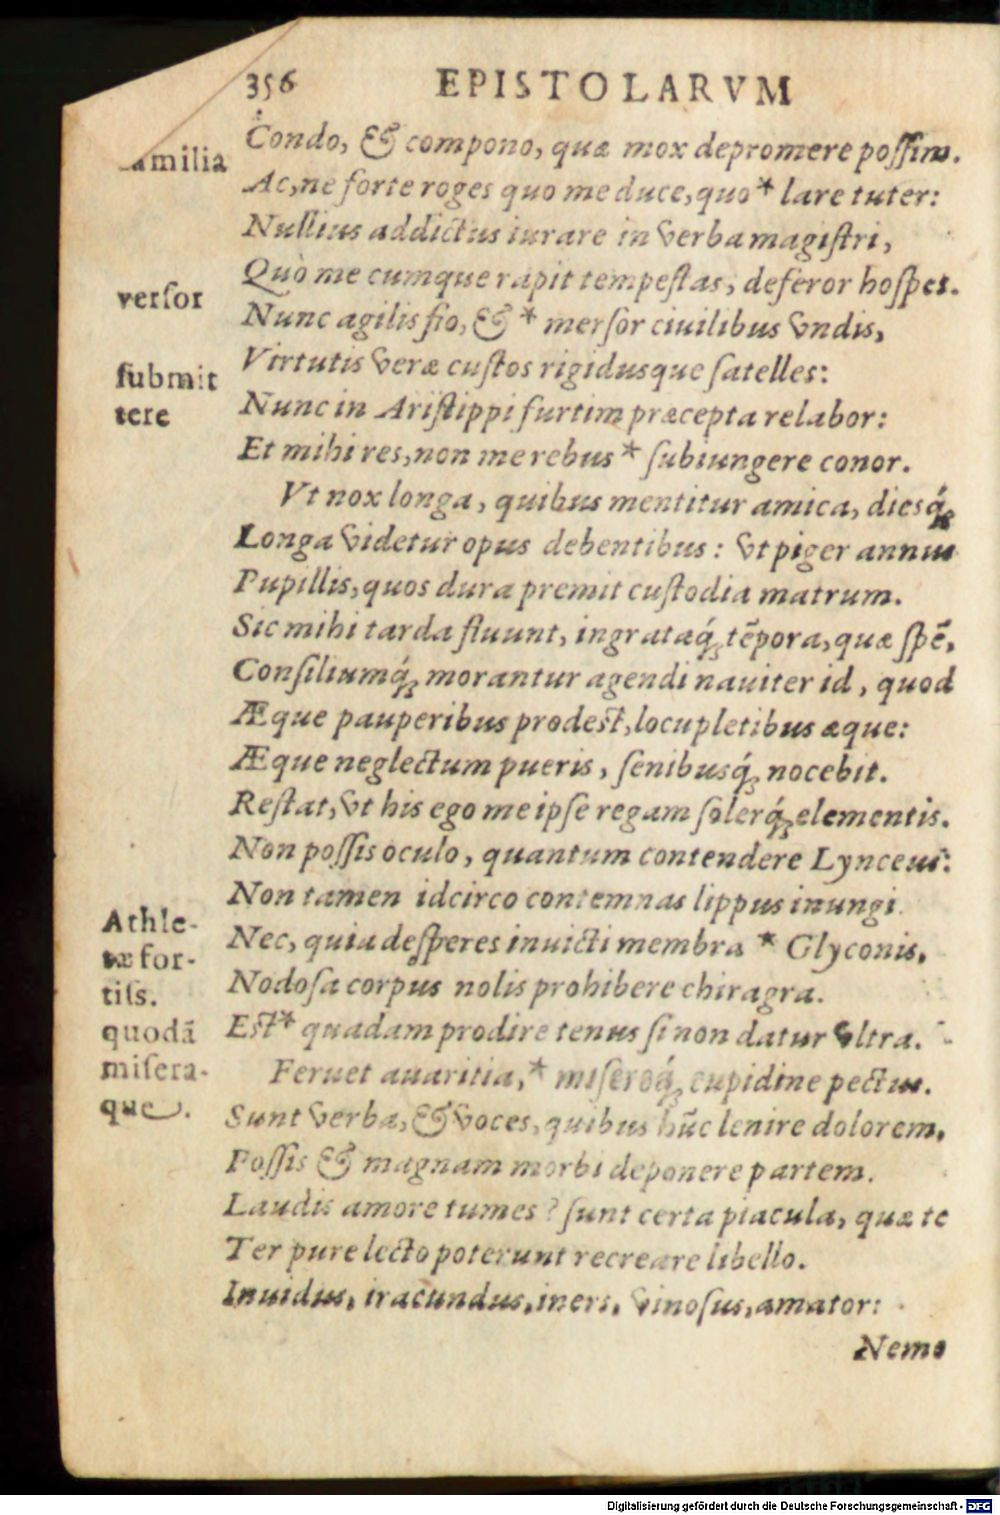 356 EPISTOLARVM
Condo, & compono, quæ mox depromere poſſim.
amilia
Ac, ne forte roges quo me duce, quo * lare tuter:
Nullius addictus iurare in verba magiſtri,
Quò me cumque rapit tempeſtas, deferor hoſpes.
verſor
Nunc agilis fio, & * merſor ciuilibus vndis,
Virtutis veræ cuſtos rigidusque ſatelles:
ſubmit
tere
Nunc in Ariſtippi furtim præcepta relabor:
Et mihi res, non me rebus * ſubiungere conor.
Vt nox longa, quibus mentitur amica, diesq́;
Longa videtur opus debentibus: vt piger annus
Pupillis, quos dura premit cuſtodia matrum.
Sic mihi tarda fluunt, ingrataq́; tēpora, quæ ſpē,
Conſiliumq́; morantur agendi nauiter id, quod
Æque pauperibus prodeſt, locupletibus æque:
Æque neglectum pueris, ſenibusq́; nocebit.
Reſtat, vt his ego me ipſe regam ſolerq́; elementis.
Non poſſis oculo, quantum contendere Lynceus:
Non tamen idcirco contemnas lippus inungi.
Athle-
tæ for-
tiſs.
Nec, quia deſperes inuicti membra * Glyconis,
Nodoſa corpus nolis prohibere chiragra.
quodā
Eſt * quadam prodire tenus ſi non datur vltra.
miſera-
que.
Feruet auaritia, * miſeroq́; cupidine pectus.
Sunt verba, & voces, quibus hūc lenire dolorem,
Poſſis & magnam morbi deponere partem.
Laudis amore tumes? ſunt certa piacula, quæ te
Ter pure lecto poterunt recreare libello.
Inuidus, iracundus, iners, vinoſus, amator:
Nemo
Digitalisierung gefördert durch die Deutsche Forschungsgemeinschaft - DFG